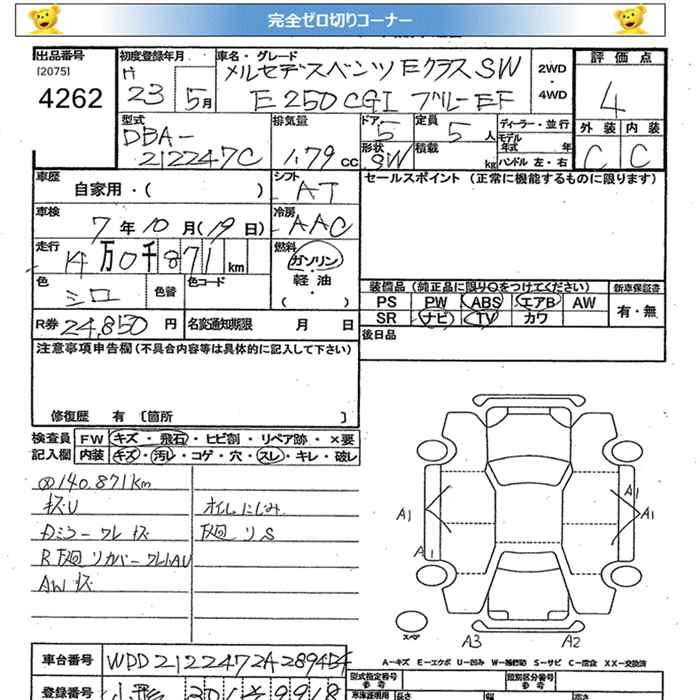 完全ゼロ切りコーナー
出品番号
[2075]
4262
初度登録年月
H
23 5月
車名・グレード
メルセデスベンツ Eクラス SW
E250 CGI ブルーEF
2WD
・
4WD
評価点
4
外装 内装
C C
型式
DBA-
212247C
排気量
1.79 cc
ドア
5
形状
SW
定員
5 人
積載
kg
ディーラー・並行
モデル
年式 年
ハンドル 左・右
車歴
自家用・( )
シフト
AT
セールスポイント (正常に機能するものに限ります)
車検
7年10月(19日)
冷房
AAC
走行
14万0千871km
燃料
ガソリン
・
軽油
・
( )
色
シロ
色替
色コード
装備品(純正品に限り○をつけてください)
新車保証書
有・無
PS PW ABS エアB AW
SR ナビ TV カワ
R券 24,850 円
名変通知期限 月 日
後日品
注意事項申告欄(不具合内容等は具体的に記入して下さい)
修復歴 有 〔箇所 〕
検査員
記入欄
FW キズ・飛石・ヒビ割・リペア跡・×要
内装 キズ・汚レ・コゲ・穴・スレ・キレ・破レ
140.871km
キズU
オイルにじみ
ワレ キズ
下廻リS
R下廻リカバーワレ
AWキズ
A1
A1
A1
A1
スペア
A3
A2
A-キズ E-エクボ U-凹み W-補修跡 S-サビ C-腐食 XX-交換済
車台番号
WDD2122472A289454
型式指定番号
参考
類別区分番号
参考
登録番号